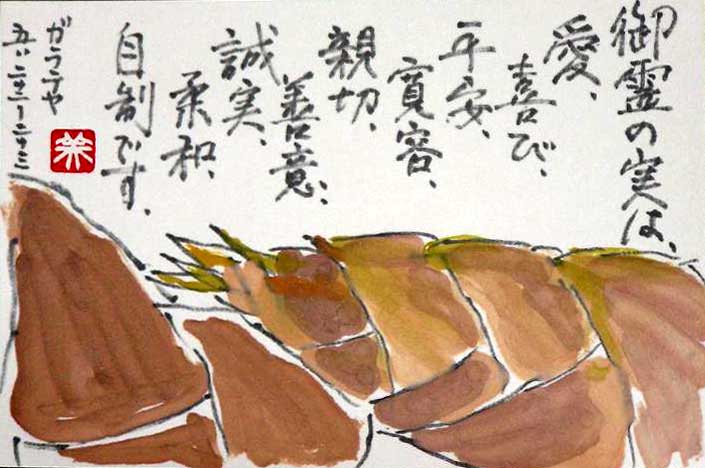 御霊の実は、
愛、
喜び、
平安、
寛容、
親切、
善意、
誠実、
柔和、
自制です。
ガラテヤ
五・二十二ー二十三